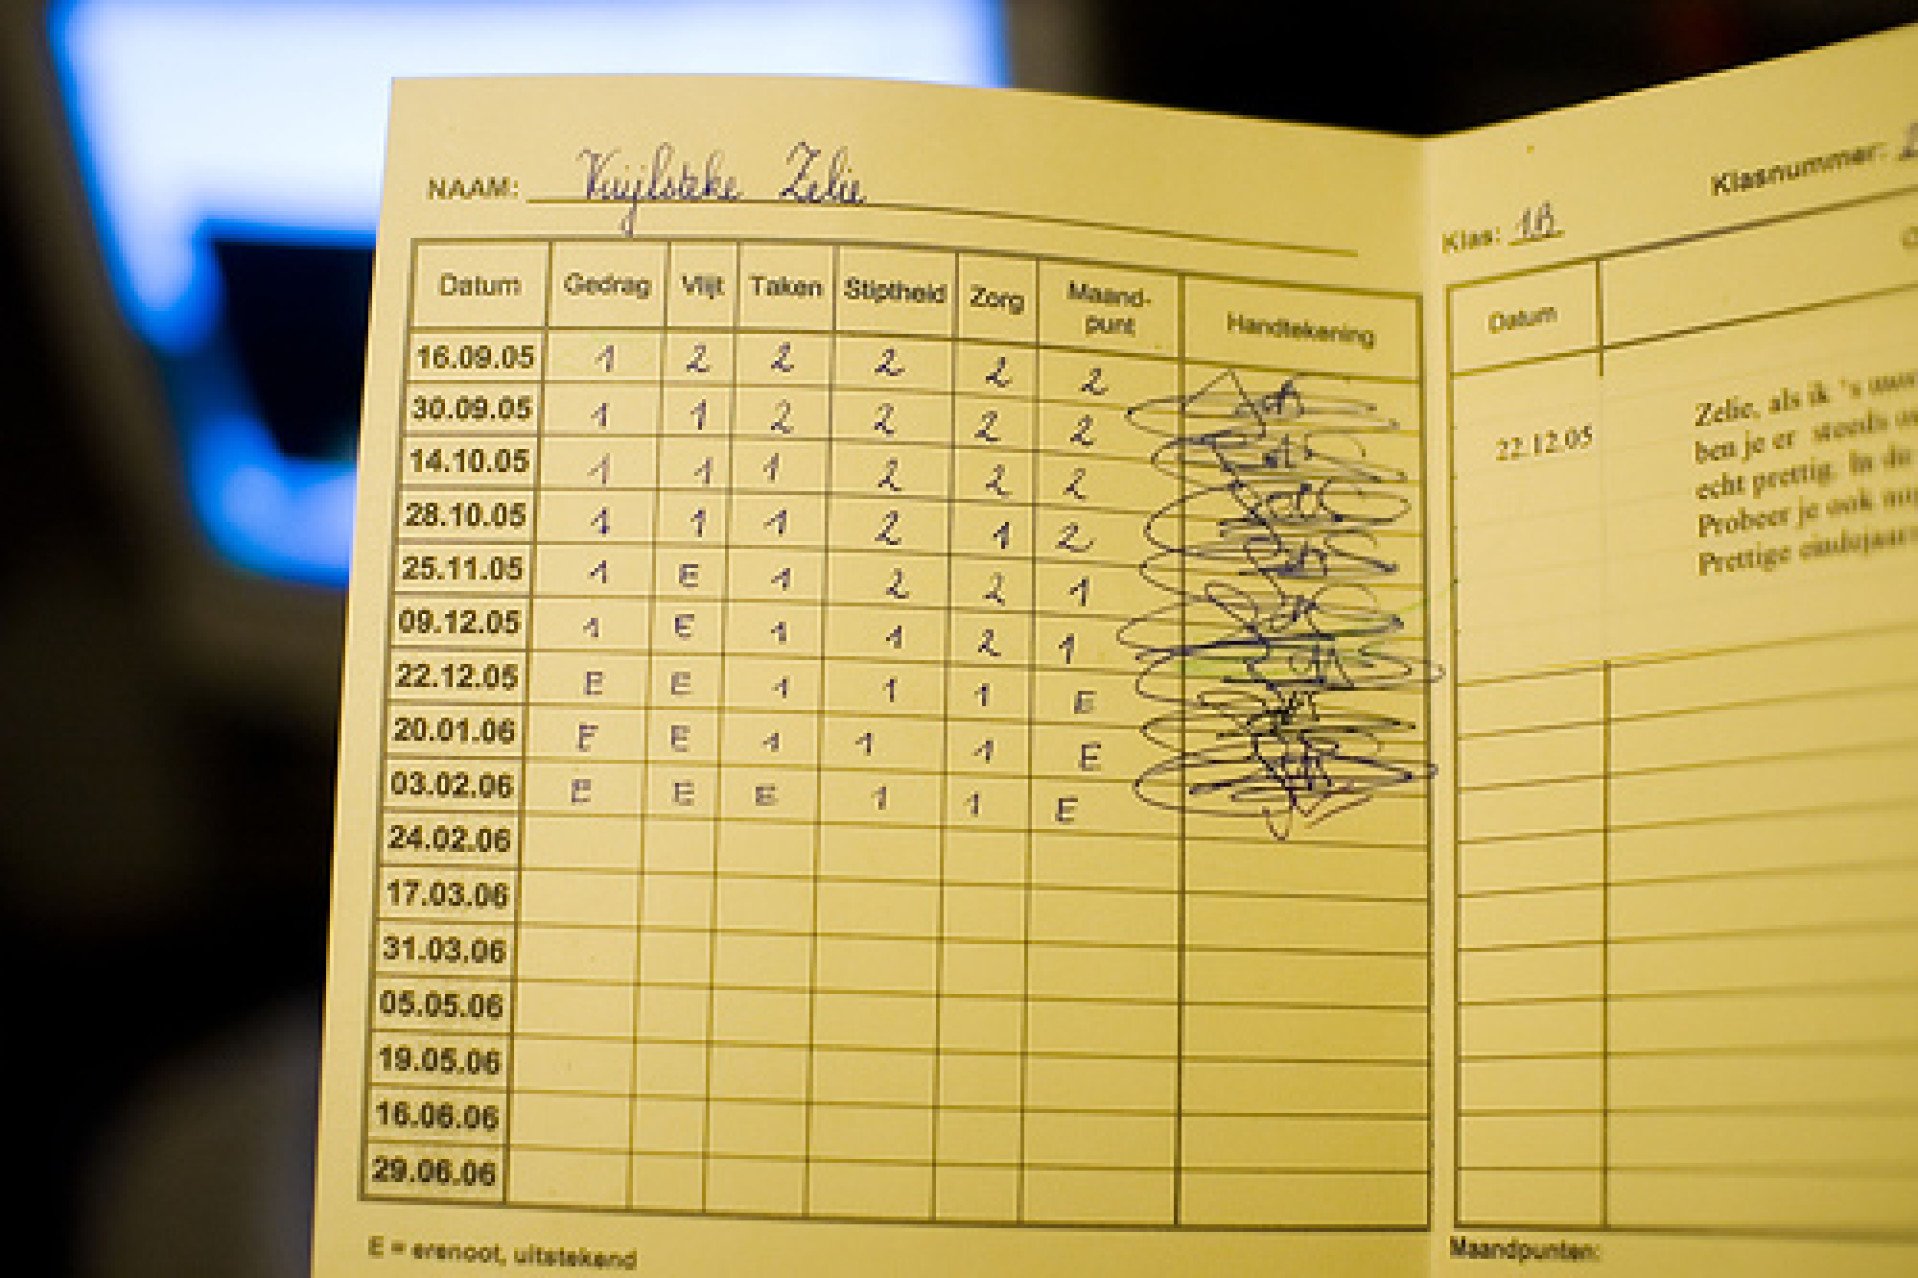 NAAM: Vuijlsteke Zelie
Datum Gedrag Vlijt Taken Stiptheid Zorg Maand-punt Handtekening
16.09.05 1 2 2 2 2 2
30.09.05 1 1 2 2 2 2
14.10.05 1 1 1 2 2 2
28.10.05 1 1 1 2 1 2
25.11.05 1 E 1 2 2 1
09.12.05 1 E 1 1 2 1
22.12.05 E E 1 1 1 E
20.01.06 E E 1 1 1 E
03.02.06 E E E 1 1 E
24.02.06
17.03.06
31.03.06
05.05.06
19.05.06
16.06.06
29.06.06
E = erenoot, uitstekend
Klas: 1B Klasnummer:
Datum
22.12.05
Zelie, als ik 's
ben je er steeds
echt prettig. In de
Probeer je ook
Prettige
Maandpunten: